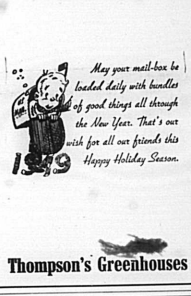 May your mail-box be
loaded daily with bundles
of good things all through
the New Year. That's our
wish for all our friends this
Happy Holiday Season.
MAIL
1949
Thompson's Greenhouses